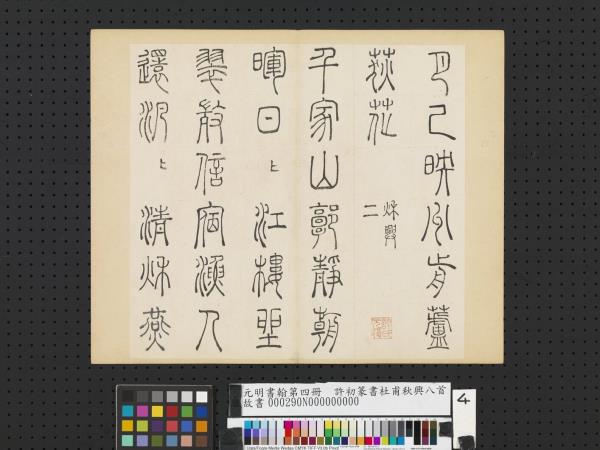 月已映洲前蘆
荻花
秋興
二
千家山郭靜朝
暉日〻江樓坐
翠微信宿漁人
還汎〻清秋燕
元明書翰第四冊　許初篆書杜甫秋興八首
故書 000290N000000000
4